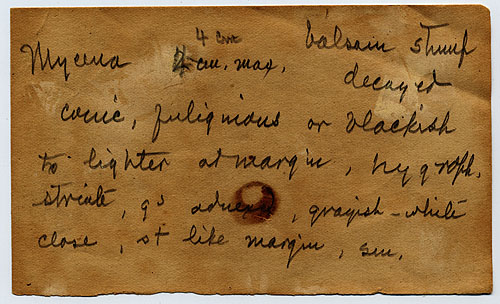 4 cm balsam stump
Mycena cm. max. decayed
conic, fuliginous or blackish
to lighter at margin, hygroph.
striate, gs adnexed, grayish-white
close, st like margin, sm.